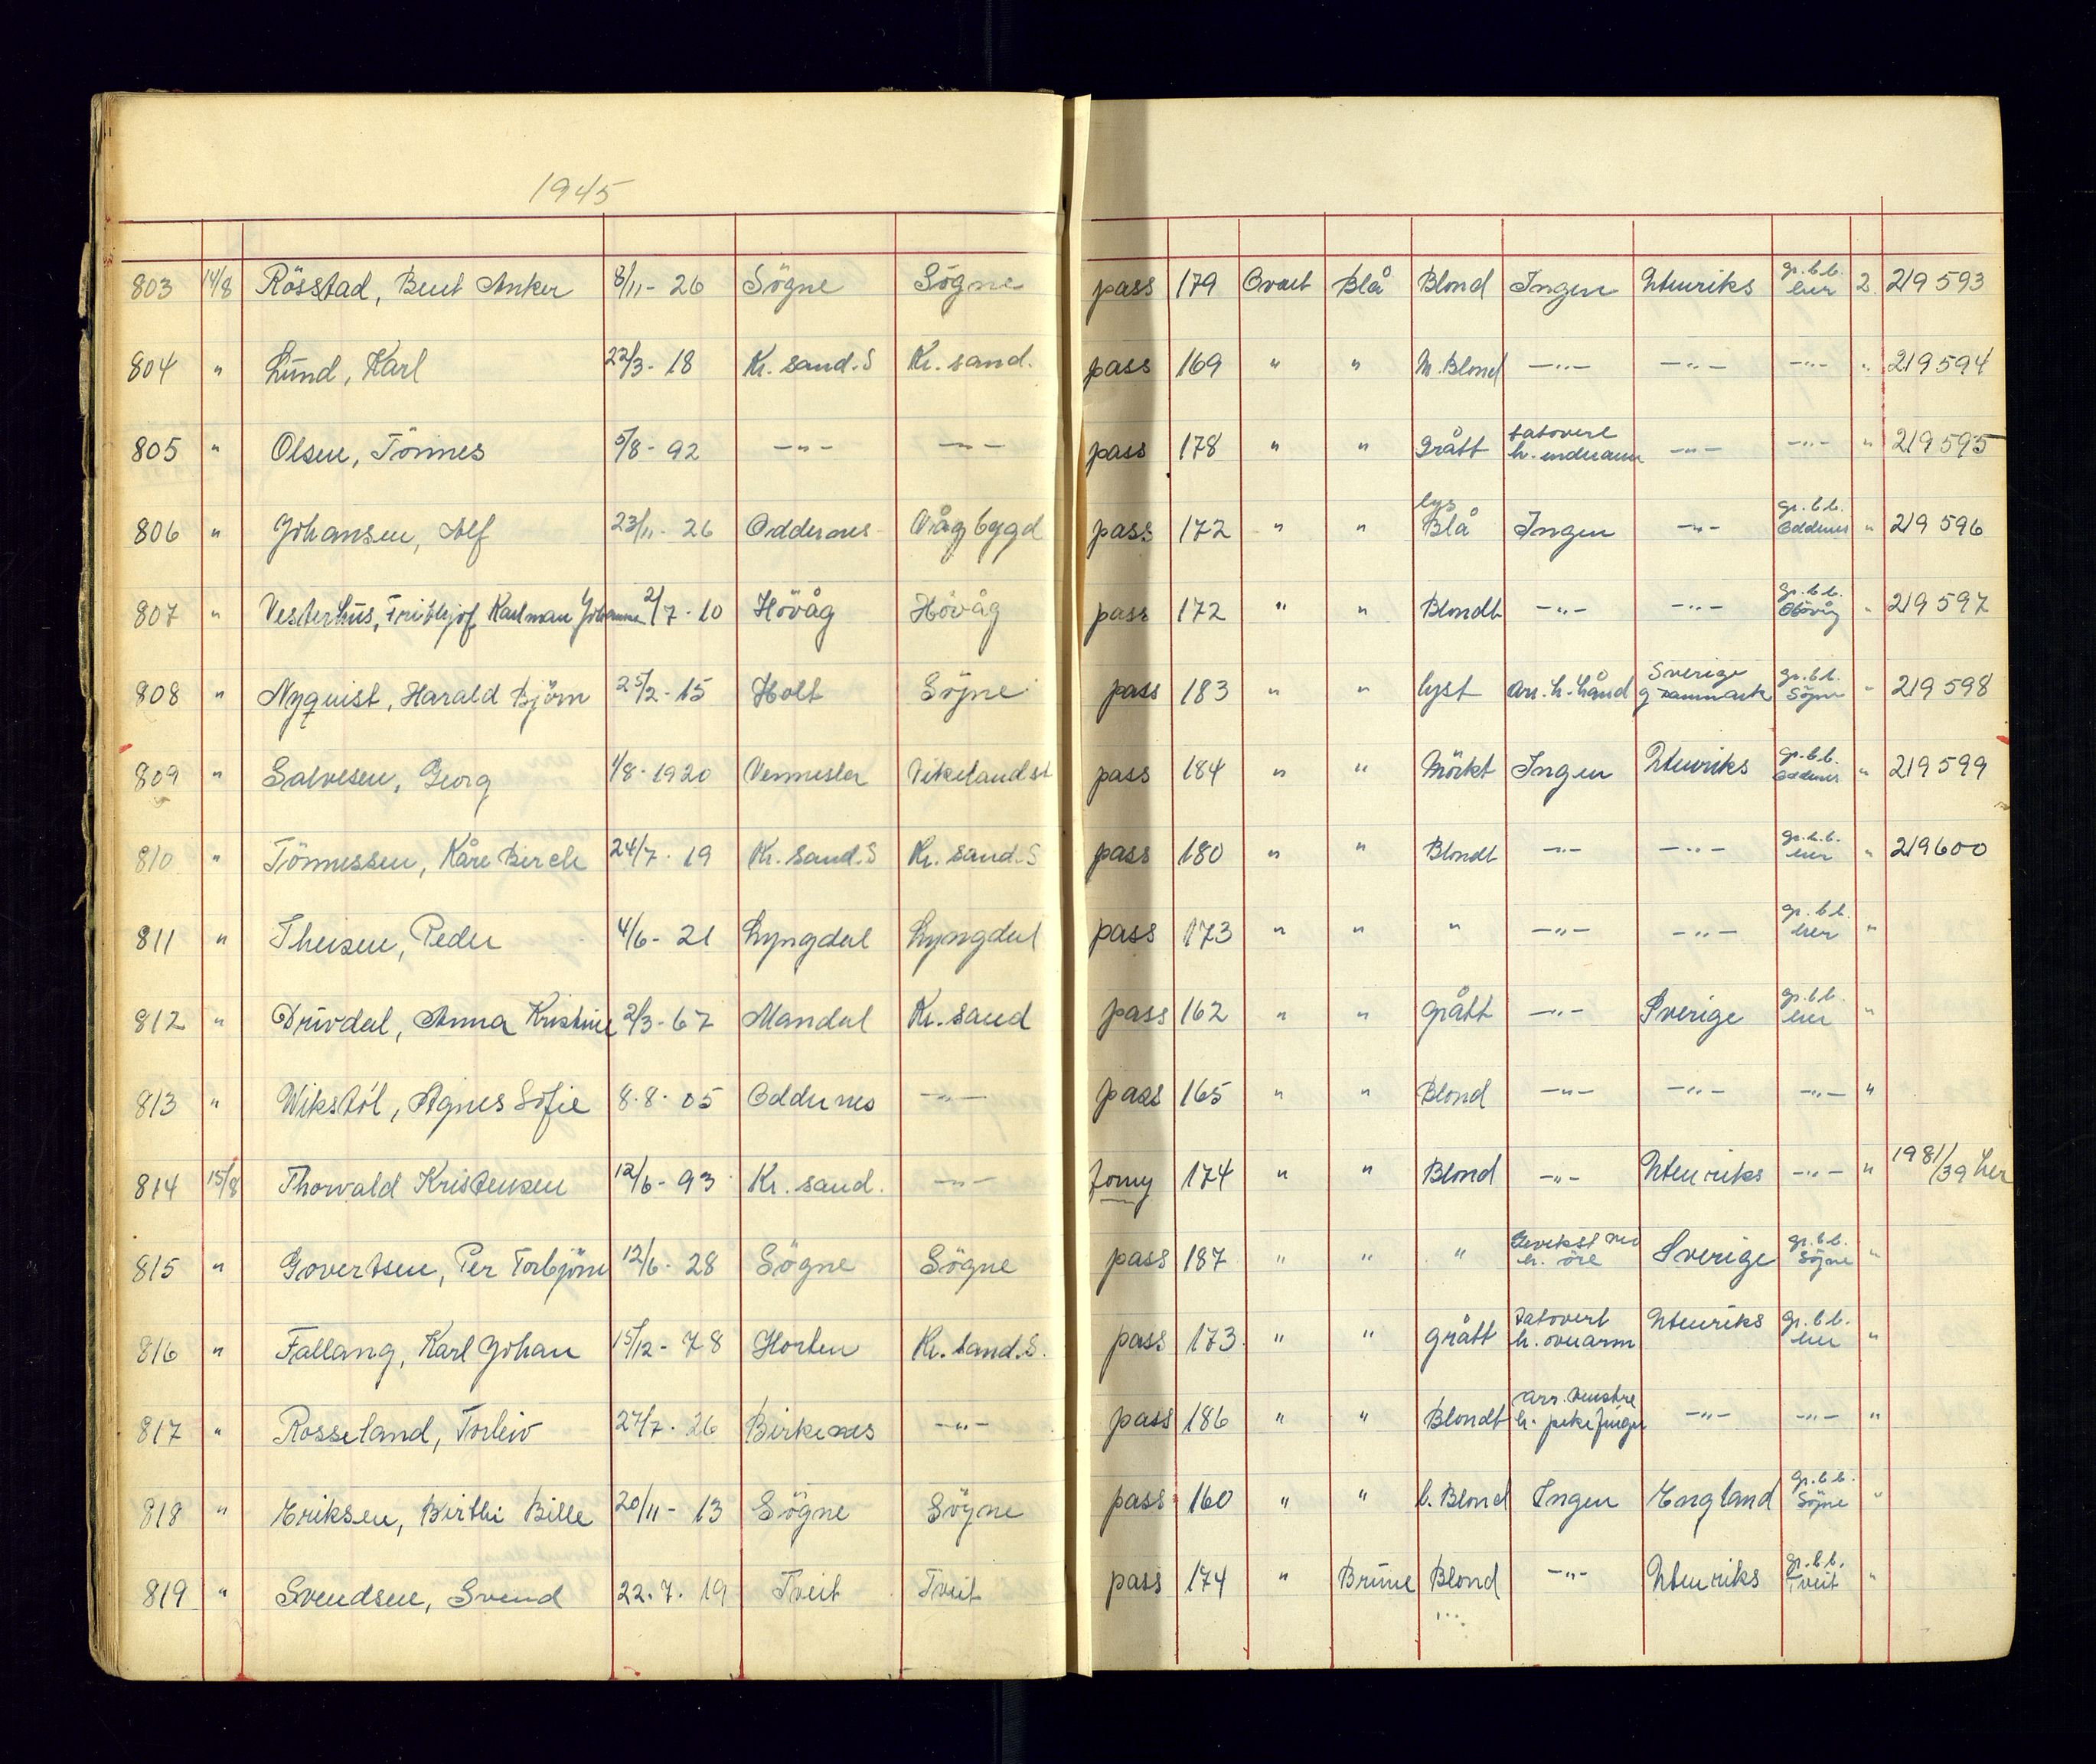 1945
803 14/8 Rösstad, Bent Anker 8/11 - 26 Sögne Sögne pass 179 Ovalt Blå Blond Ingen Utenriks gr.b.b. her 2. 219593
804 " Lund, Karl 22/3 - 18 Kr. sand. S Kr. sand. pass 169 " " M. Blond —"— —"— —"— " 219594
805 " Olsen, Tönnes 5/8 - 92 —"— —"— pass 178 " " Grått tatovert h. underarm —"— —"— " 219595
806 " Johansen, Alf 23/11 - 26 Oddernes Vågsbygd pass 172 " " lys Blå Ingen —"— gr.b.b. Oddernes " 219596
807 " Vesterhus, Frithjof Karlman 2/7 - 10 Hövåg Hövåg pass 172 " " Blondt —"— —"— gr.b.b. Hövåg " 219597
808 " Nyquist, Harald Björn 25/2 - 15 Holt Sögne pass 183 " " lyst Arr. h. hånd Sverige og Danmark gr.b.b. Sögne " 219598
809 " Salvesen, Georg 1/8 - 1920 Vennesla Vikeland st pass 184 " " Mörkt Ingen Utenriks gr.b.b. Oddernes " 219599
810 " Tönnessen, Kåre Berck 24/7 - 19 Kr. sand. S Kr. sand. S pass 180 " " Blondt —"— —"— gr.b.b. her " 219600
811 " Theisen, Peder 4/6 - 21 Lyngdal Lyngdal pass 173 " " " —"— —"— gr.b.b. her "
812 " Drivdal, Anna Kristine 2/3 - 67 Mandal Kr. sand pass 162 " " grått —"— Sverige gr.b.b. her "
813 " Wikstöl, Agnes Sofie 8. 8. 05 Oddernes —"— pass 165 " " Blond —"— —"— —"— "
814 15/8 Thorvald Kristensen 12/6 - 93 Kr. sand. —"— forny 174 " " Blond —"— Utenriks —"— " 1981/39 her
815 " Govertsen, Per Torbjörn 12/6 - 28 Sögne Sögne pass 187 " " " Gevekst ved h. öre Sverige gr.b.b. Sögne "
816 " Fallang, Karl Johan 15/12 - 78 Horten Kr. sand. S. pass 173. " " grått Tatovert h. overarm Utenriks gr.b.b. her "
817 " Rosseland, Torleiv 27/7 - 26 Birkenes —"— pass 186 " " Blondt Arr. venstre h. pekefinger —"— —"— "
818 " Eriksen, Birthi Bille 20/11 - 13 Sögne Sögne pass 160 " " l. Blond Ingen England gr.b.b. Sögne "
819 " Svendsen, Svend 22. 7. 19 Tveit Tveit pass 174 " Brune Blond —"— Utenriks gr.b.b. Tveit "